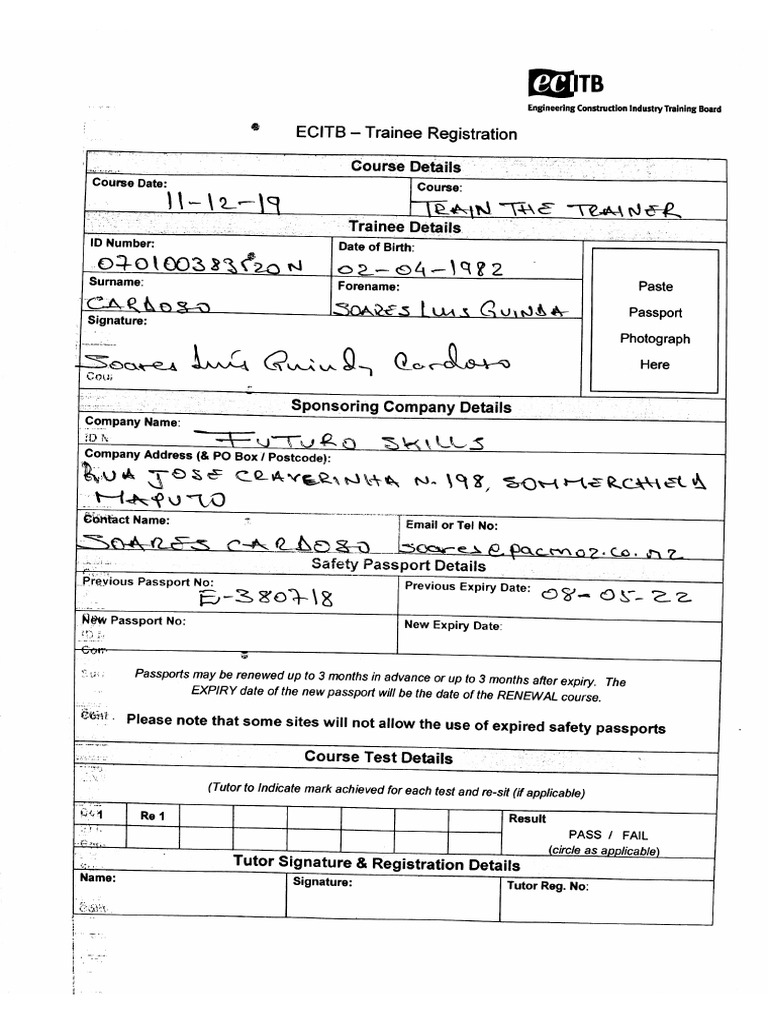 ecITB
Engineering Construction Industry Training Board
ECITB – Trainee Registration
Course Details
Course Date:
11-12-19
Course:
TRAIN THE TRAINER
Trainee Details
ID Number:
Date of Birth:
02-04-1982
Surname:
CARDOSO
Forename:
SOARES LUIS GUINDA
Paste
Passport
Photograph
Here
Signature:
Soares Luís Cardoso
Sponsoring Company Details
Company Name:
FUTURO SKILLS
Company Address (& PO Box / Postcode):
RUA JOSE CRAVERINHA N. 198, SOMMERCHIELD
MAPUTO
Contact Name:
SOARES CARDOSO
Email or Tel No:
soares@pacmoz.co.mz
Safety Passport Details
Previous Passport No:
E-380718
Previous Expiry Date:
08-05-22
New Passport No:
New Expiry Date:
Passports may be renewed up to 3 months in advance or up to 3 months after expiry. The
EXPIRY date of the new passport will be the date of the RENEWAL course.
Please note that some sites will not allow the use of expired safety passports
Course Test Details
(Tutor to Indicate mark achieved for each test and re-sit (if applicable)
1
Re 1
Result
PASS / FAIL
(circle as applicable)
Tutor Signature & Registration Details
Name:
Signature:
Tutor Reg. No: